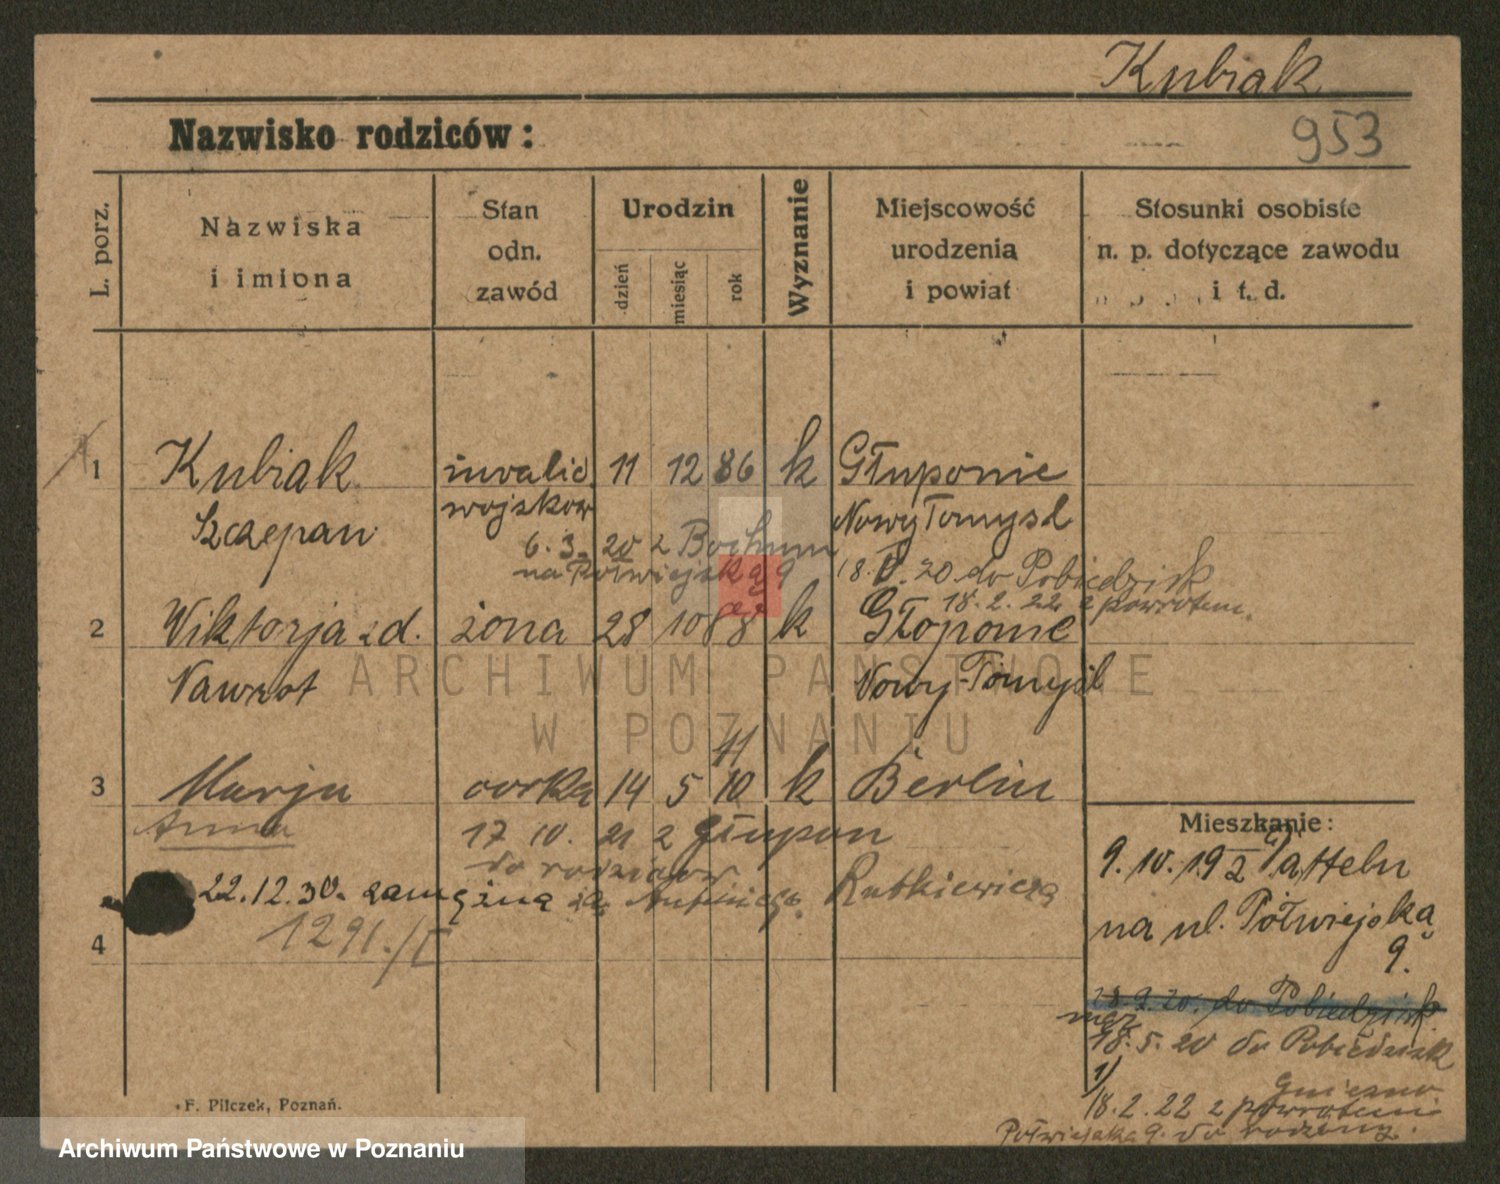 Kubiak
Nazwisko rodziców:
953
L. porz.
Nazwiska
i imiona
Stan
odn.
zawód
Urodzin
dzień
miesiąc
rok
Wyznanie
Miejscowość
urodzenia
i powiat
Stosunki osobiste
n. p. dotyczące zawodu
i t. d.
1 Kubiak invalid. 11 12 86 k Głuponie
Szczepan wojskow Nowy Tomysl
6. 3. 20 z Bochum
na Półwiejską 9
18. V. 20 do Pobiedzisk
18. 2. 22 z powrotem.
2 Wiktorja z d. żona 28 10 88 k Głoponie
Nawrot Nowy-Tomyśl
ARCHIWUM PAŃSTWOWE
W POZNANIU
11
3 Marja corka 14 5 10 k Berlin
Anna 17 10. 21 z Głupon
do rodziców
22.12.30. zamężna za Rutkiewicza
1291./I
4
Mieszkanie:
9. 10. 19 z Datteln
na ul. Półwiejską
9.
28. 9. 20. do Pobiedzisk.
mąż
18. 5. 20 do Pobiedzisk
1/
Gniezno
18. 2. 22 z powrotem
Półwiejska 9. do rodziny.
F. Pilczek, Poznań.
Archiwum Państwowe w Poznaniu